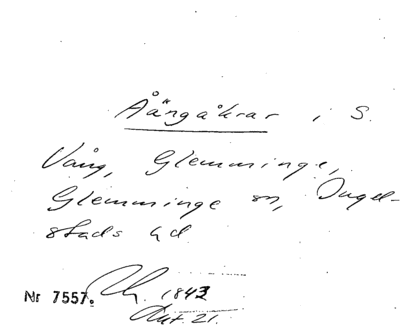 Äängåkrar i S.
Vång, Glemminge,
Glemminge sn, Ingel-
stads hd
Nr 7557.
1843
Akt 21.